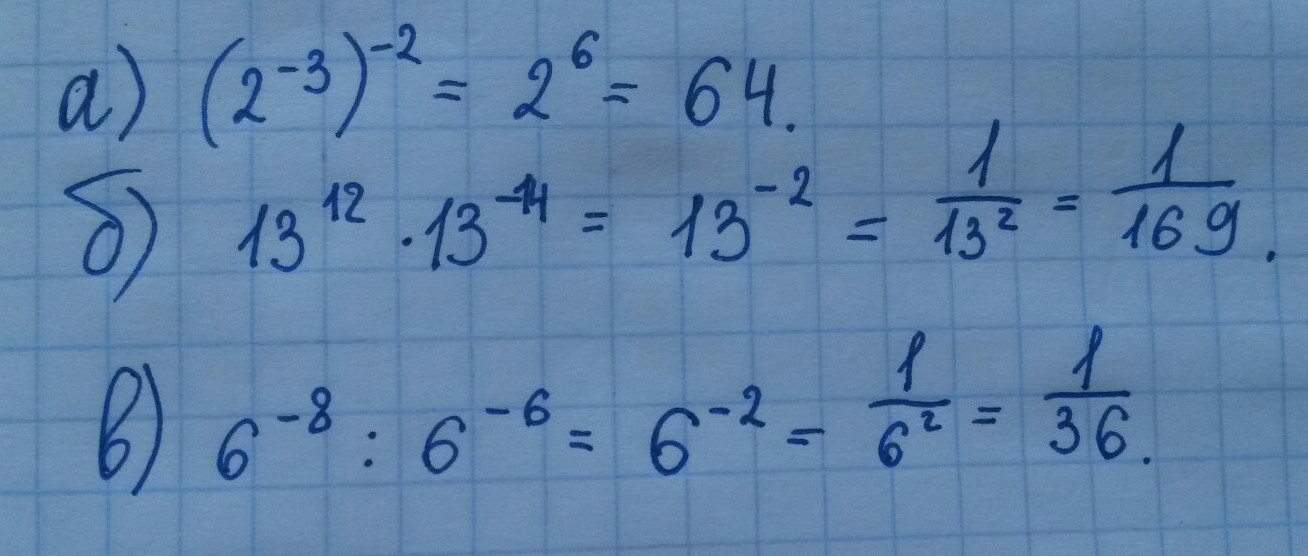 а) (2⁻³)⁻² = 2⁶ = 64.
б) 13¹² · 13⁻¹⁴ = 13⁻² = 1/13² = 1/169.
в) 6⁻⁸ : 6⁻⁶ = 6⁻² = 1/6² = 1/36.